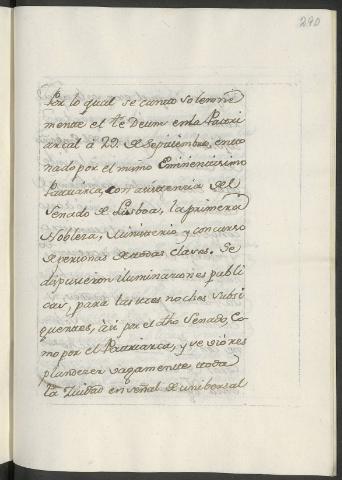 290
Por lo qual se canto solemne
mente el te Deum en la Patri
arcal à 29. de Septiembre, ento
nado por el mismo Eminentissimo
Patriarca, con asistencia del
Senado de Lisboa, la primera
Nobleza, Ministerio y concurso
de personas de todas clases. Se
dispusieron iluminaciones publi
cas, para las tres noches subsi
quentes, àsi por el dho Senado, Co
mo por el Patriarca, y se viò res
plandezer vagamente toda
la Ziudad en señal de unibersal